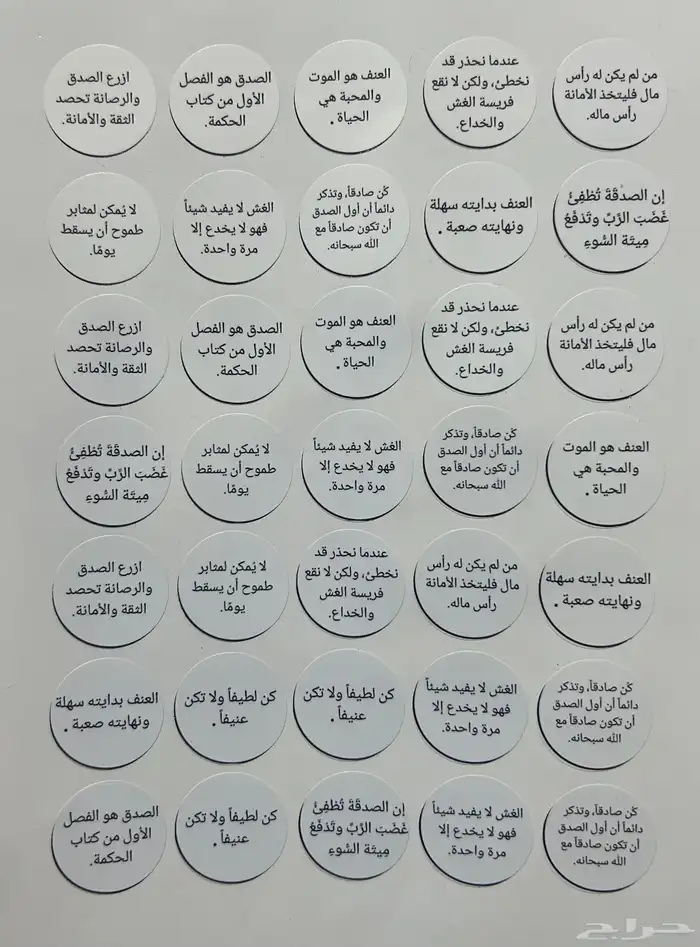 من لم يكن له رأس
مال فليتخذ الأمانة
رأس ماله.
عندما نحذر قد
نخطئ، ولكن لا نقع
فريسة الغش
والخداع.
العنف هو الموت
والمحبة هي
الحياة .
الصدق هو الفصل
الأول من كتاب
الحكمة.
ازرع الصدق
والرصانة تحصد
الثقة والأمانة.
إن الصدقَةَ تُطْفِئُ
غَضَبَ الرَّبِّ وتَدْفَعُ
مِيتَةَ السُّوءِ
العنف بدايته سهلة
ونهايته صعبة .
كُن صادقاً، وتذكر
دائماً أن أول الصدق
أن تكون صادقاً مع
الله سبحانه.
الغش لا يفيد شيئاً
فهو لا يخدع إلا
مرة واحدة.
لا يُمكن لمثابر
طموح أن يسقط
يومًا.
من لم يكن له رأس
مال فليتخذ الأمانة
رأس ماله.
عندما نحذر قد
نخطئ، ولكن لا نقع
فريسة الغش
والخداع.
العنف هو الموت
والمحبة هي
الحياة .
الصدق هو الفصل
الأول من كتاب
الحكمة.
ازرع الصدق
والرصانة تحصد
الثقة والأمانة.
العنف هو الموت
والمحبة هي
الحياة .
كُن صادقاً، وتذكر
دائماً أن أول الصدق
أن تكون صادقاً مع
الله سبحانه.
الغش لا يفيد شيئاً
فهو لا يخدع إلا
مرة واحدة.
لا يُمكن لمثابر
طموح أن يسقط
يومًا.
إن الصدقَةَ تُطْفِئُ
غَضَبَ الرَّبِّ وتَدْفَعُ
مِيتَةَ السُّوءِ
العنف بدايته سهلة
ونهايته صعبة .
من لم يكن له رأس
مال فليتخذ الأمانة
رأس ماله.
عندما نحذر قد
نخطئ، ولكن لا نقع
فريسة الغش
والخداع.
لا يُمكن لمثابر
طموح أن يسقط
يومًا.
ازرع الصدق
والرصانة تحصد
الثقة والأمانة.
كُن صادقاً، وتذكر
دائماً أن أول الصدق
أن تكون صادقاً مع
الله سبحانه.
الغش لا يفيد شيئاً
فهو لا يخدع إلا
مرة واحدة.
كن لطيفاً ولا تكن
عنيفاً .
كن لطيفاً ولا تكن
عنيفاً .
العنف بدايته سهلة
ونهايته صعبة .
كُن صادقاً، وتذكر
دائماً أن أول الصدق
أن تكون صادقاً مع
الله سبحانه.
الغش لا يفيد شيئاً
فهو لا يخدع إلا
مرة واحدة.
إن الصدقَةَ تُطْفِئُ
غَضَبَ الرَّبِّ وتَدْفَعُ
مِيتَةَ السُّوءِ
كن لطيفاً ولا تكن
عنيفاً .
الصدق هو الفصل
الأول من كتاب
الحكمة.
حراج